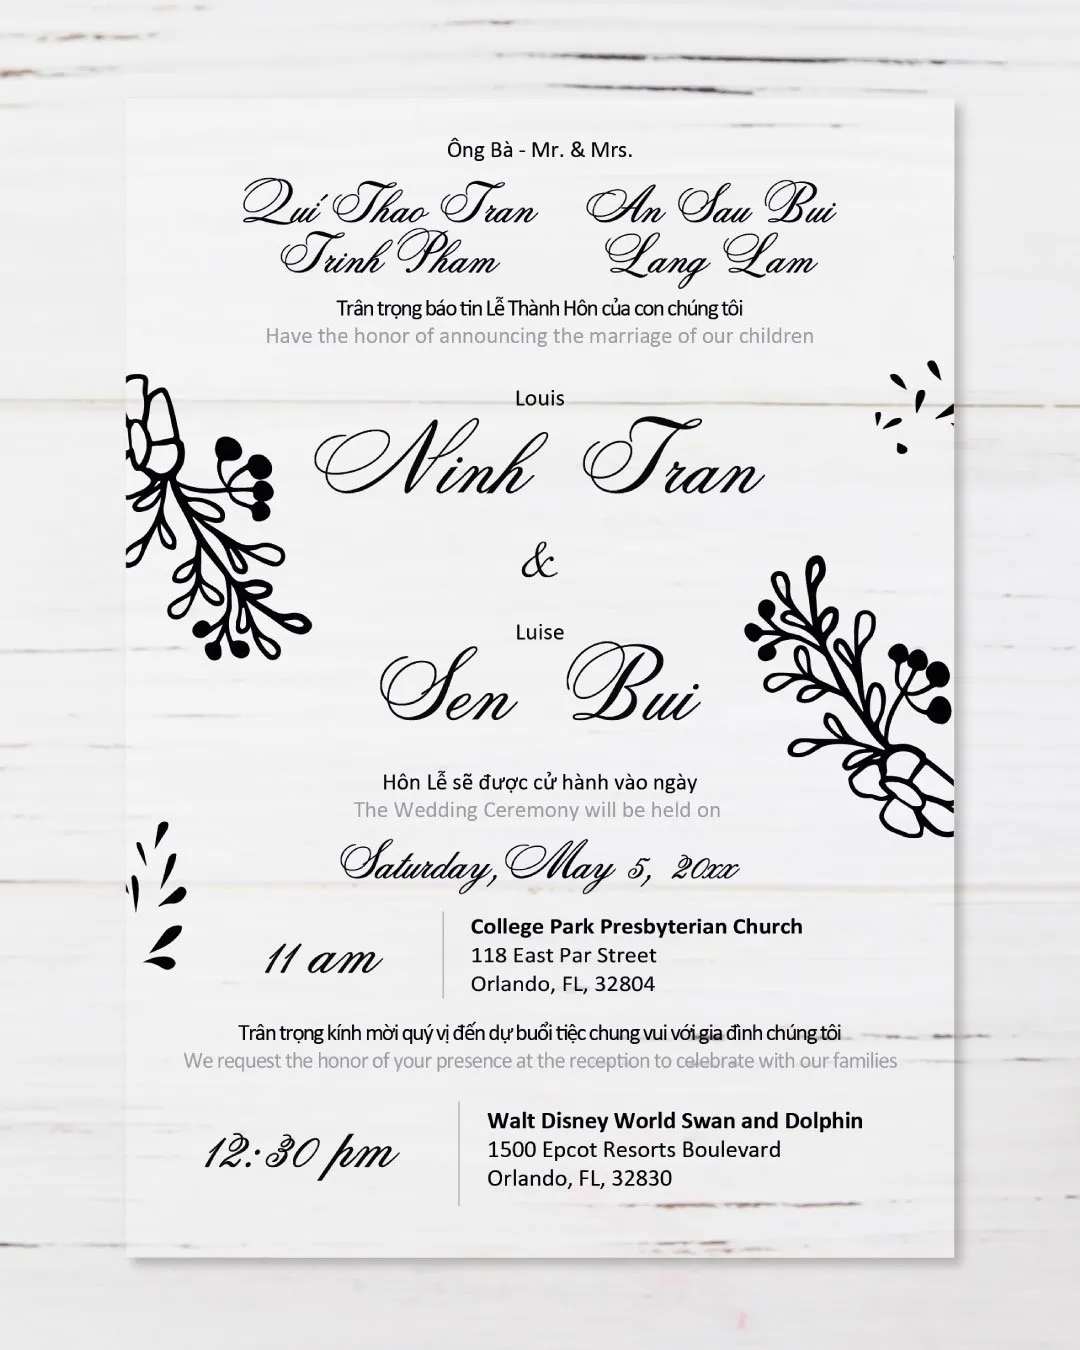 Ông Bà - Mr. & Mrs.
Quí Thao Tran
Trinh Pham
An Sau Bui
Lang Lam
Trân trọng báo tin Lễ Thành Hôn của con chúng tôi
Have the honor of announcing the marriage of our children
Louis
Ninh Tran
&
Luise
Sen Bui
Hôn Lễ sẽ được cử hành vào ngày
The Wedding Ceremony will be held on
Saturday, May 5, 20xx
11 am
College Park Presbyterian Church
118 East Par Street
Orlando, FL, 32804
Trân trọng kính mời quý vị đến dự buổi tiệc chung vui với gia đình chúng tôi
We request the honor of your presence at the reception to celebrate with our families
12:30 pm
Walt Disney World Swan and Dolphin
1500 Epcot Resorts Boulevard
Orlando, FL, 32830